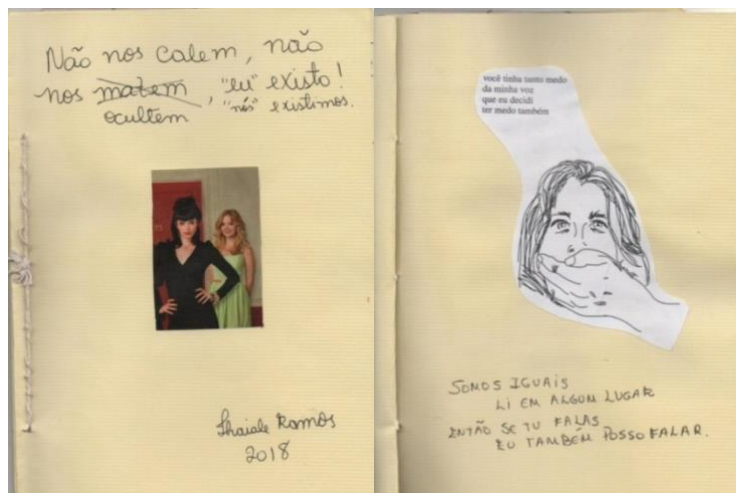 Não nos calem, não
nos matem, "eu" existo!
ocultem "nós" existimos.
Thaiale Ramos
2018
você tinha tanto medo
da minha voz
que eu decidi
ter medo também
SOMOS IGUAIS
LI EM ALGUM LUGAR
ENTÃO SE TU FALAS,
EU TAMBÉM POSSO FALAR.